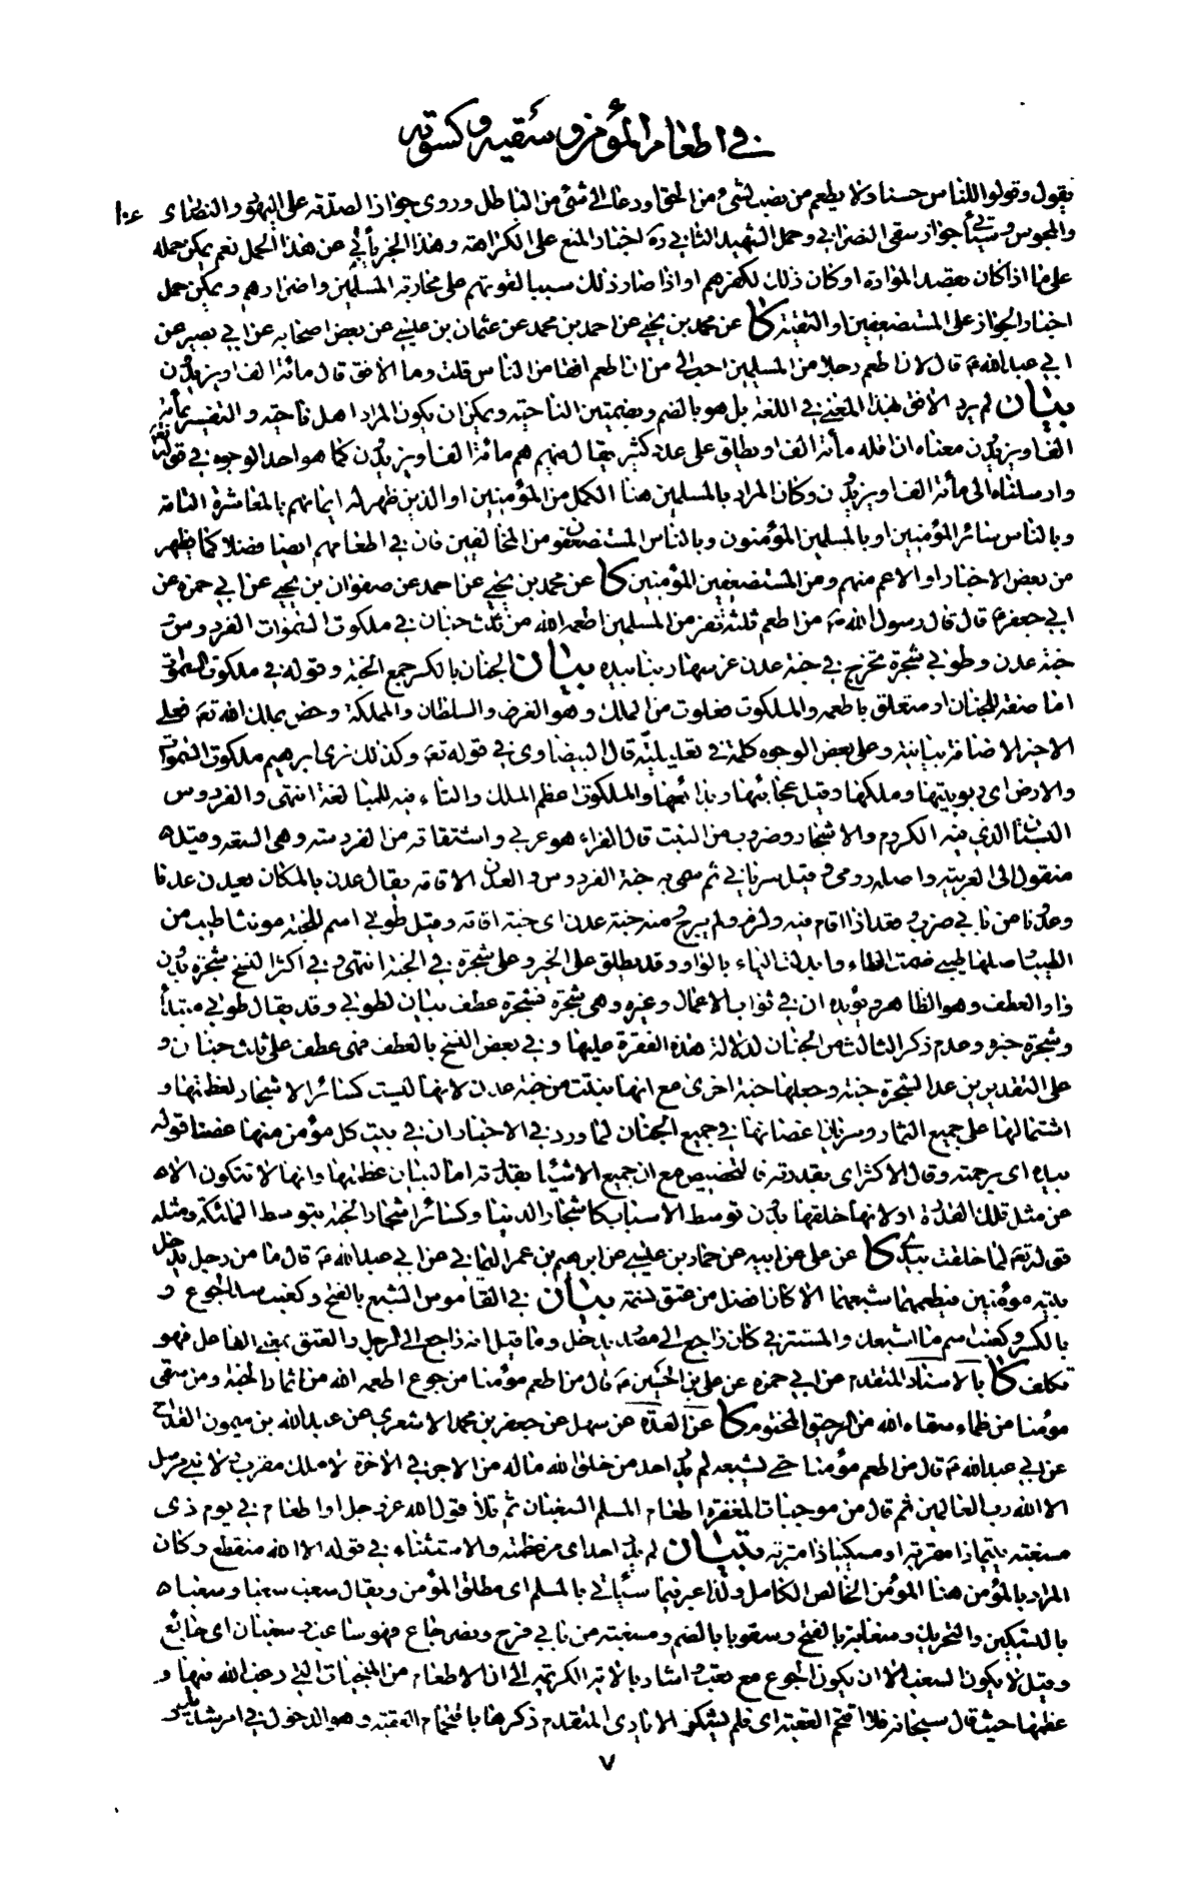 في اطعام المؤمن وسقيه وكسوته
يقول وقولوا للناس حسنا ولا يطعم من نصب لشئ من الحق او دعا الى شئ من الباطل وروى جواز الصدقة على اليهود والنصارى
والمجوس وسيأتي جواز سقى النصراني وحمل الشهيد الثاني ره اخبار المنع على الكراهة وهذا الخبر يأبى عن هذا الحمل نعم يمكن حمله
على ما اذا كان بقصد الموادة او كان ذلك لكفرهم او اذا صار ذلك سببا لقوتهم على محاربة المسلمين واضرارهم ويمكن حمل
اخبار الجواز على المستضعفين او التقية كا عن محمد بن يحيى عن احمد بن محمد عن عثمان بن عيسى عن بعض اصحابه عن ابي بصير عن
ابي عبد الله ع قال لان اطعم رجلا من المسلمين احب الى من ان اطعم افقا من الناس قلت وما الافق قال مائة الف او يزيدون
بيان لم يرد الافق بهذا المعنى في اللغة بل هو بالضم وبضمتين الناحية ويمكن ان يكون المراد اهل ناحية والتفسير بمائة
الف او يزيدون معناه ان اقله مأة الف او يطلق على عدد كثير يقال فيهم هم مائة الف او يزيدون كما هو احد الوجوه في قوله تعالى
وارسلناه الى مأة الف او يزيدون وكان المراد بالمسلمين هنا الكمل من المؤمنين او الذين ظهر له ايمانهم بالمعاشرة التامة
وبالناس سائر المؤمنين او بالمسلمين المؤمنون وبالناس المستضعفون من المخالفين فان في اطعامهم ايضا فضلا كما يظهر
من بعض الاخبار او الاعم منهم ومن المستضعفين المؤمنين كا عن محمد بن يحيى عن احمد عن صفوان بن يحيى عن ابي حمزه عن
ابي جعفر ع قال قال رسول الله ص من اطعم ثلثة نفر من المسلمين اطعمه الله من ثلث جنان في ملكوت السموات الفردوس و
جنة عدن وطوبى شجرة تخرج في جنة عدن غرسها ربنا بيده بيان الجنان بالكسر جمع الجنة وقوله في ملكوت السموات
اما صفة للجنان او متعلق باطعمه والملكوت فعلوت من الملك وهو العز والسلطان والمملكة وخص بملك الله تعالى فعلى
الاخير الاضافة بيانية وعلى بعض الوجوه كلمة في تعليلية قال البيضاوي في قوله تعالى وكذلك نرى ابرهيم ملكوت السموات
والارض اى ربوبيتها وملكها وقيل عجائبها وبدائعها والملكوت اعظم الملك والتاء فيه للمبالغة انتهى والفردوس
البستان الذي فيه الكروم والاشجار وضروب من النبت قال الفراء هو عربي واشتقاقه من الفردسة وهي السعة وقيل
منقول الى العربية واصله رومى وقيل سرياني ثم سمى به جنة الفردوس والعدن الاقامة يقال عدن بالمكان يعدن عدنا
وعدونا من بابي ضرب وقعد اذا اقام فيه ولزم ولم يبرح ومنه جنة عدن اى جنة اقامة وقيل طوبى اسم للجنة مؤنث اطيب من
الطيب واصلها طيبى ضمت الطاء وابدلت الياء بالواو وقد يطلق على الخير وعلى شجرة في الجنة انتهى وفي اكثر النسخ شجرة بدون
واو العطف وهو الظاهر ويؤيده ان في ثواب الاعمال وغيره وهي شجرة فشجرة عطف بيان لطوبى وقد يقال طوبى مبتدأ
وشجرة خبره وعدم ذكر الثالث من الجنان لدلالة هذه الفقرة عليها وفي بعض النسخ بالعطف فهى عطف على ثلث جنان و
على التقديرين عد الشجرة جنة وجعلها جنة اخرى مع انها نبتت من جنة عدن لانها ليست كسائر الاشجار لعظمتها و
اشتمالها على جميع الثمار وسريان اغصانها في جميع الجنان لما ورد في الاخبار ان في بيت كل مؤمن منها غصنا قوله
بيده اى برحمته وقال الاكثر اى بقدرته فالتخصيص مع ان جميع الاشياء بقدرته اما لبيان عظمتها وانها لا تتكون الا
عن مثل تلك القدرة او لانها خلقها بدون توسط الاسباب كاشجار الدنيا وكسائر اشجار الجنة بتوسط الملائكة ومثله
قوله تعالى لما خلقت بيدي كا عن على عن ابيه عن حماد بن عيسى عن ابرهيم بن عمر اليماني عن ابي عبد الله ع قال ما من رجل يدخل
بيته مؤمنين فيطعمهما شبعهما الا كان افضل من عتق نسمة بيان في القاموس الشبع بالفتح وكعنب ضد الجوع و
بالكسر وكعنب اسم ما اشبعك والمستتر في كان راجع الى مصدر يدخل وما قيل انه راجع الى الرجل والعتق بمعنى الفاعل فهو
تكلف كا بالاسناد المتقدم عن ابي حمزه عن على بن الحسين ع قال من اطعم مؤمنا من جوع اطعمه الله من ثمار الجنة ومن سقى
مؤمنا من ظماء سقاه الله من الرحيق المختوم كا عن العدة عن سهل عن جعفر بن محمد الاشعري عن عبد الله بن ميمون القداح
عن ابي عبد الله ع قال من اطعم مؤمنا حتى يشبعه لم يدر احد من خلق الله ما له من الاجر في الاخرة لا ملك مقرب ولا نبي مرسل
الا الله رب العالمين ثم قال من موجبات المغفرة اطعام المسلم السغبان ثم تلا قول الله عز وجل او اطعام في يوم ذى
مسغبة يتيما ذا مقربة او مسكينا ذا متربة بيان لم يدر احد اى من عظمته والاستثناء في قوله الا الله منقطع وكان
المراد بالمؤمن هنا المؤمن الخالص الكامل ولذا عبر فيما سيأتي بالمسلم اى مطلق المؤمن ويقال سغب سغبا وسغبا
بالتسكين والتحريك وسغابة بالفتح وسغوبا بالضم ومسغبة من بابي فرح ونصر جاع فهو ساغب وسغبان اى جائع
وقيل لا يكون السغب الا ان يكون الجوع مع تعب واشار بالآية الكريمة الى ان الاطعام من المنجيات التي رغب الله فيها و
عظمها حيث قال سبحانه فلا اقتحم العقبة اى فلم يشكر الايادي المتقدم ذكرها باقتحام العقبة وهو الدخول في امر شديد
٧